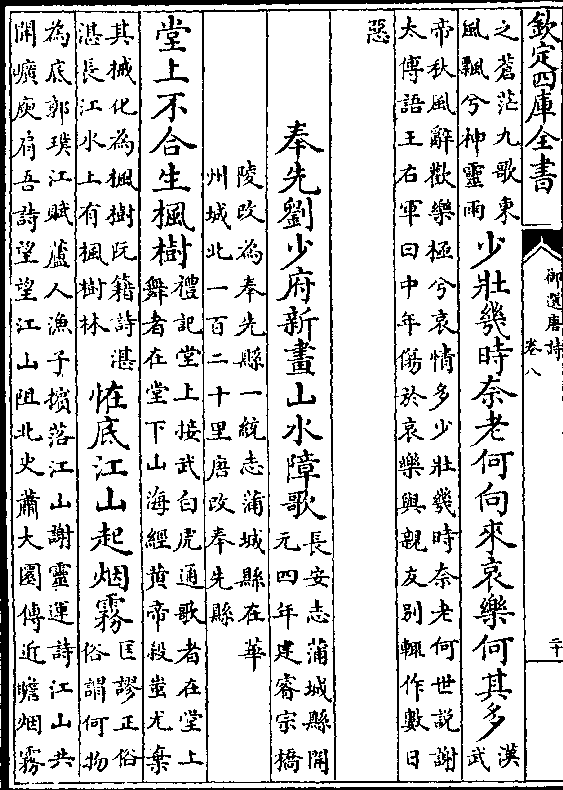 欽定四庫全書
御選唐詩
卷八
二十
之蒼茫九歌東
風飄兮神靈雨
少壯幾時奈老何向來哀樂何其多
漢武
帝秋風辭歡樂極兮哀情多少壯幾時奈老何世說謝
太傅語王右軍曰中年傷於哀樂與親友別輒作數日
惡
奉先劉少府新畫山水障歌
長安志蒲城縣開
元四年建睿宗橋
陵改為奉先縣一統志蒲城縣在華
州城北一百二十里唐改奉先縣
堂上不合生楓樹
禮記堂上接武白虎通歌者在堂上
舞者在堂下山海經黃帝殺蚩尤棄
其械化為楓樹阮籍詩湛
湛長江水上有楓樹林
怪底江山起烟霧
匡謬正俗
俗謂何物
為底郭璞江賦蘆人漁子擯落江山謝靈運詩江山共
開曠庾肩吾詩望望江山阻北史蕭大圜傳近瞻烟霧